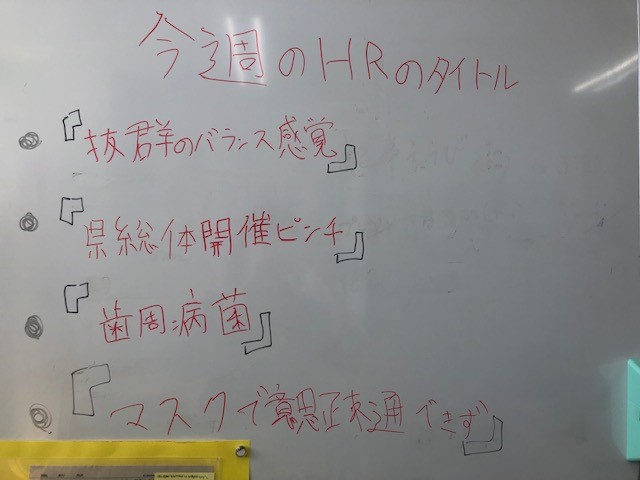 今週のHRのタイトル
『抜群のバランス感覚』
『県総体開催ピンチ』
『歯周病菌』
『マスクで意思疎通できず』